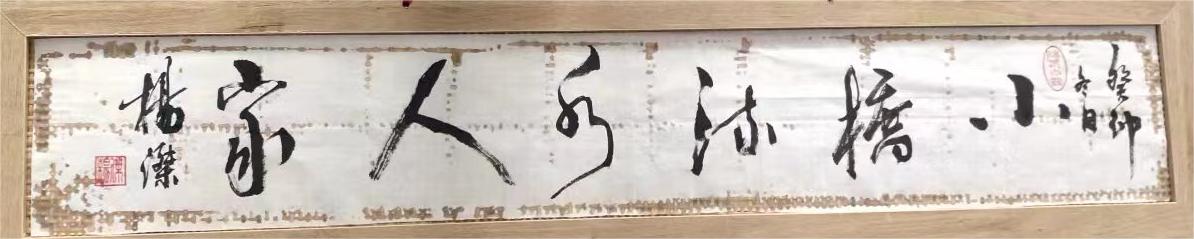 癸卯
冬日
小橋流水人家
楊濼